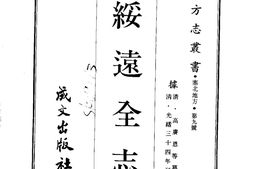 方志叢書·塞北地方·第九號
據清·高賡恩等纂
清·光緒三十四年
綏遠全志
成文出版社